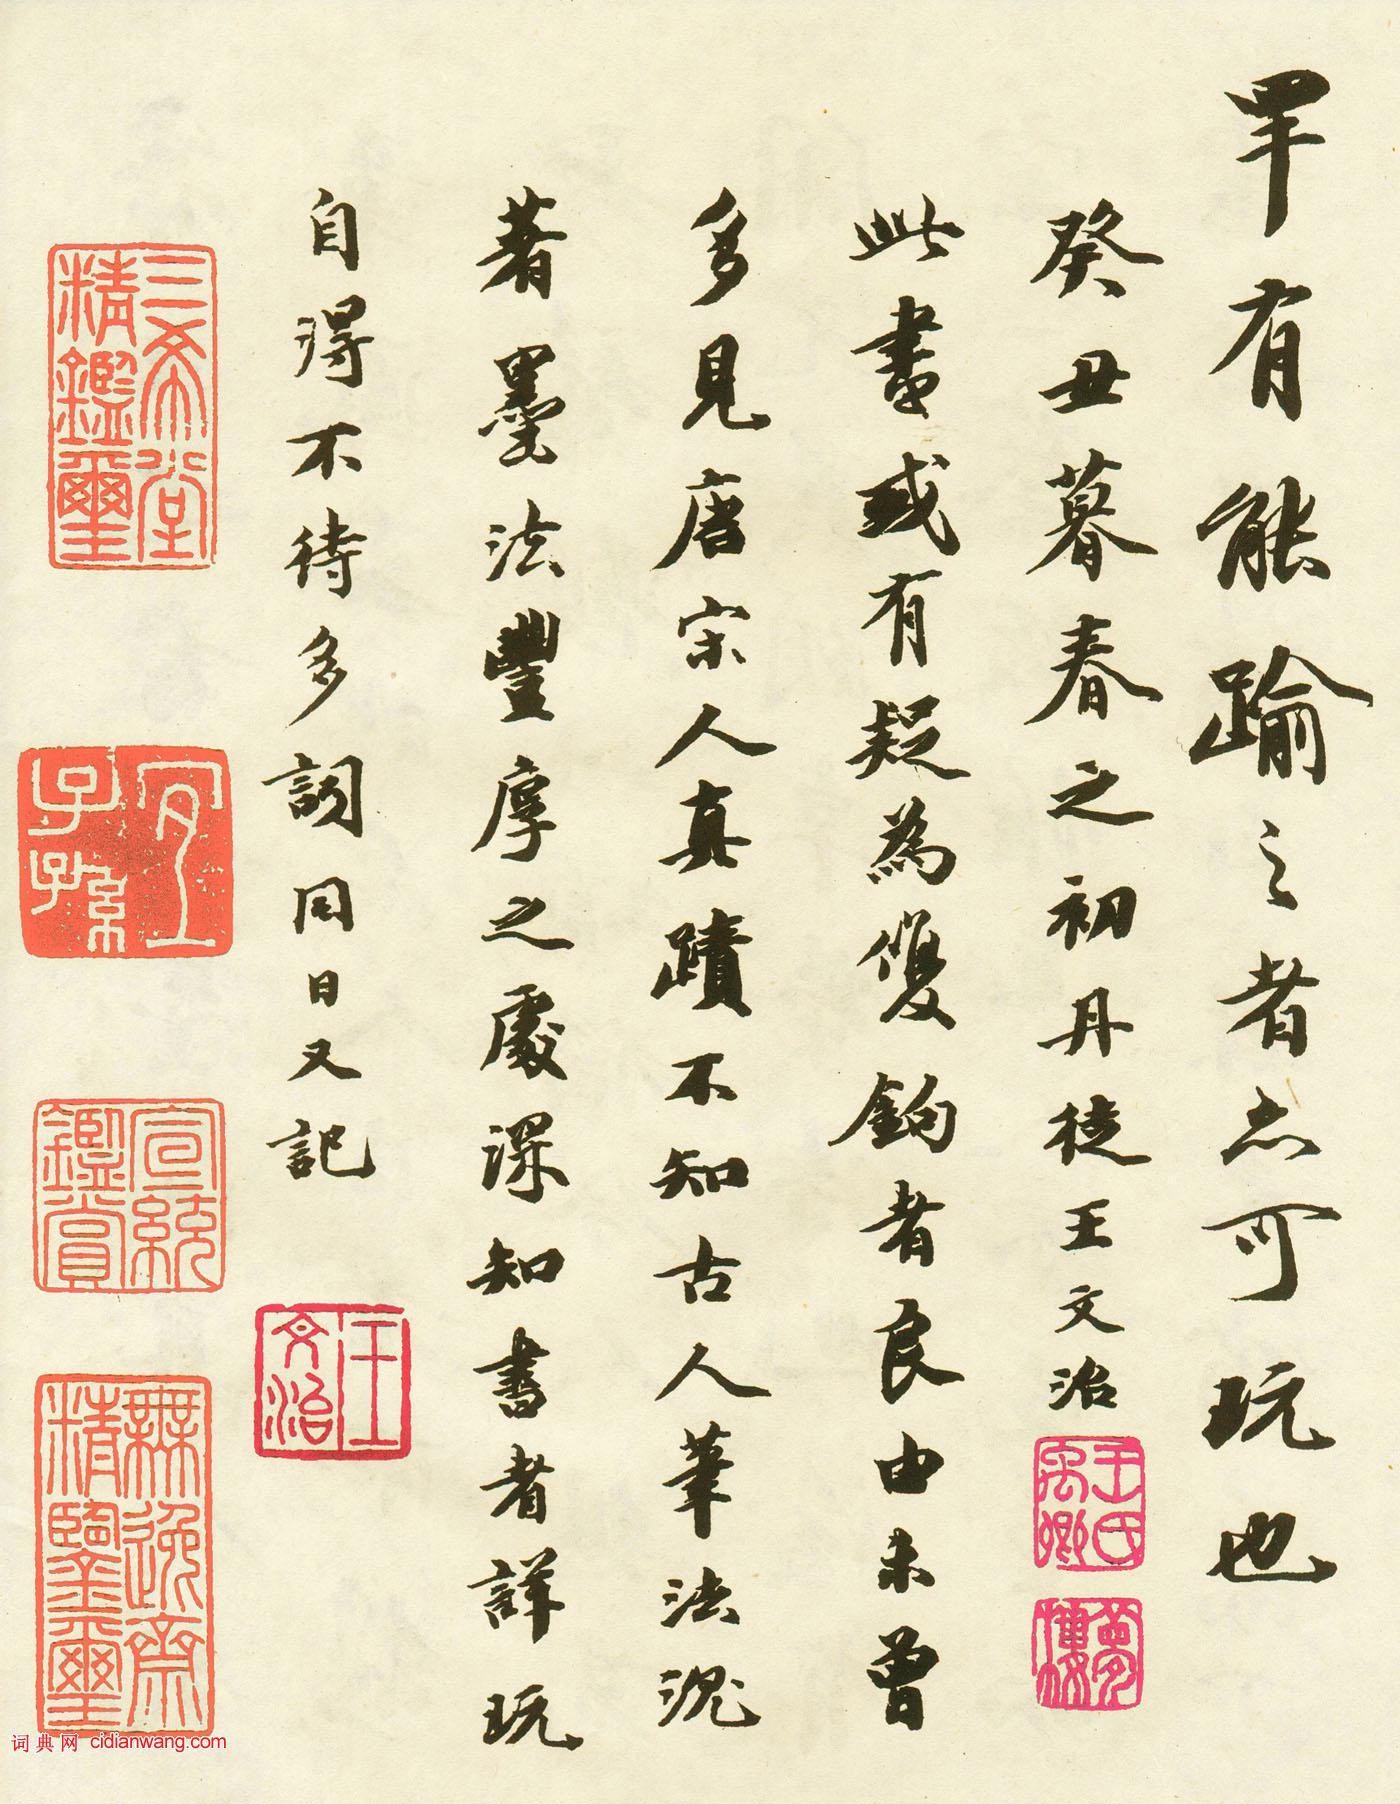 罕有能踰之者亦可玩也
癸丑暮春之初丹徒王文治
王氏禹卿
夢樓
此書或有疑為雙鉤者良由未曾
多見唐宋人真蹟不知古人筆法沉
著墨法豐厚之處深知書者詳玩
自得不待多詞同日又記
王文治
三希堂
精鑑璽
宜
子孫
宣統
鑑賞
無逸齋
精鑒璽
词典网 cidianwang.com